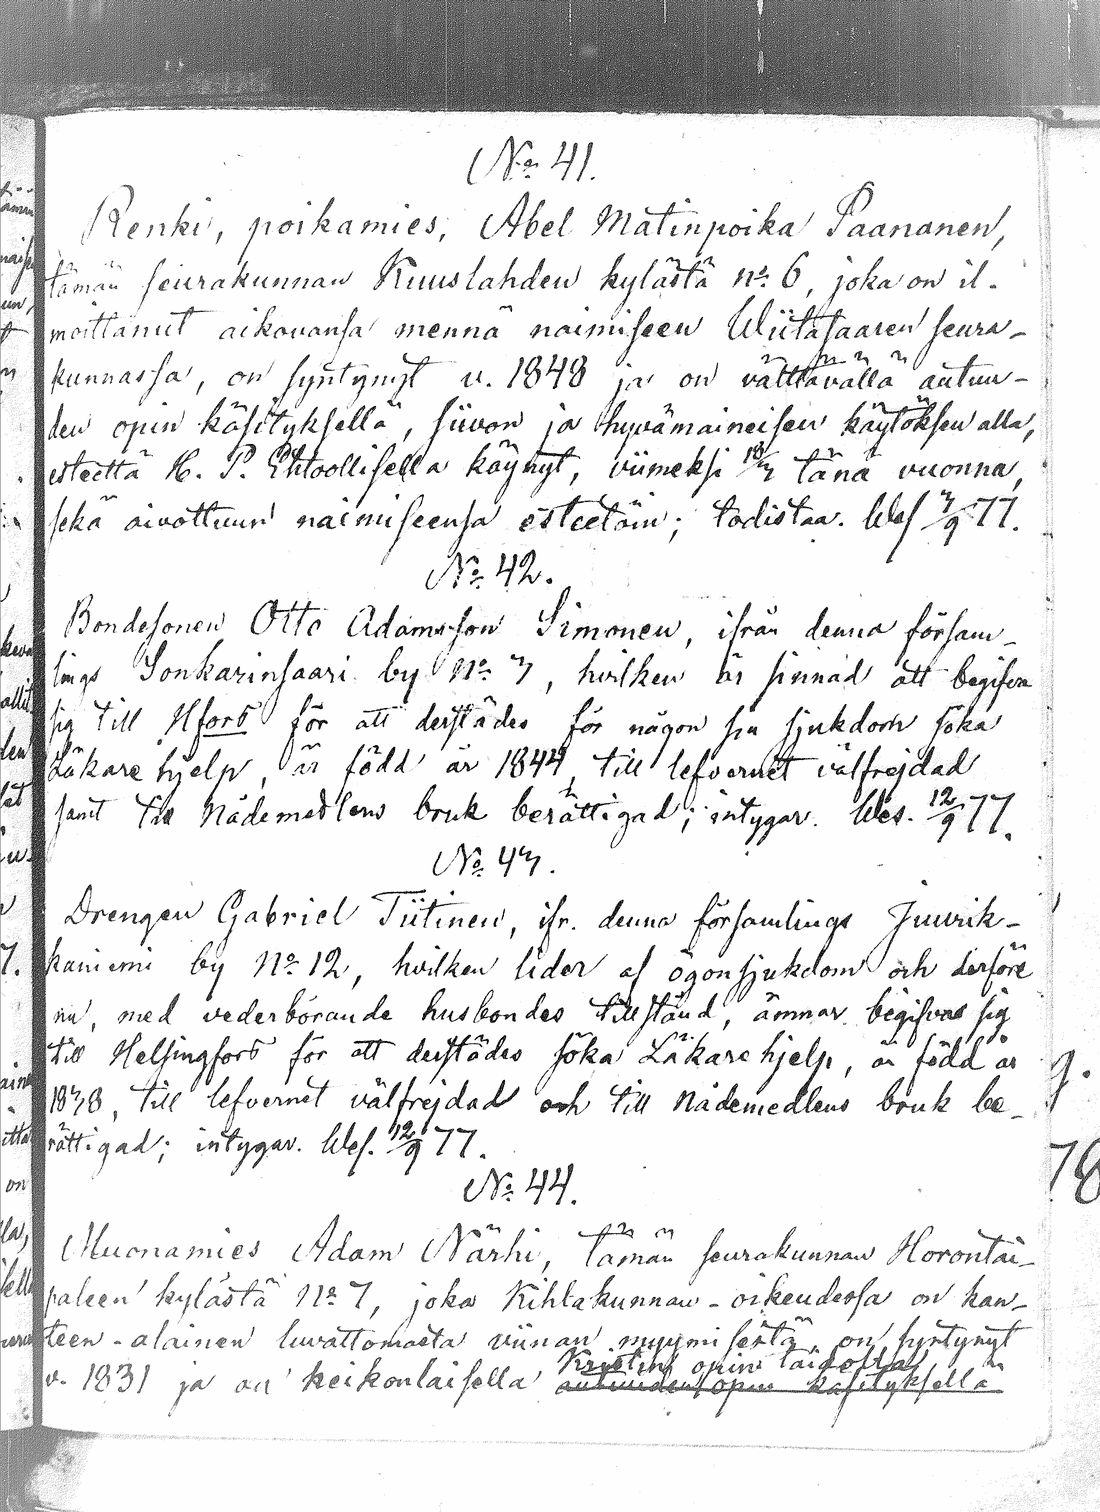 No 41.
Renki, poikamies, Abel Matinpoika Paananen,
tämän seurakunnan Kuuslahden kylästä No 6, joka on il-
moittanut aikovansa mennä naimiseen Wiitasaaren seura-
kunnassa, on syntynyt v. 1848 ja on välttävällä autuu-
den opin käsityksellä, siivon ja hyvämaineisen käytöksen alla,
esteettä H. P. Ehtoollisella käynyt, viimeksi tänä vuonna,
sekä aivottuun naimiseensa esteetöin; todistaa. Wes 3/9 77.
No 42.
Bondesonen Otto Adamsson Simonen, ifrån denna försam-
lings Sonkarinsaari by No 3, hvilken är sinnad att begifva
sig till Hfors för att derstädes för någon sin sjukdom söka
Läkare hjelp, är född år 1844, till lefvernet välfrejdad
samt till Nådemedlens bruk berättigad; intygar. Wes. 12/9 77.
No 43.
Drengen Gabriel Tiitinen, ifr. denna församlings Juurik-
kaniemi by No 12, hvilken lider af ögonsjukdom och derföre
nu, med vederbörande husbondes tillstånd, ämnar begifva sig
till Helsingfors för att derstädes söka Läkare hjelp, är född år
1838, till lefvernet välfrejdad och till Nådemedlens bruk be-
rättigad; intygar. Wes. 12/9 77.
No 44.
Muonamies Adam Närhi, tämän seurakunnan Horontai-
paleen kylästä No 7, joka Kihlakunnan-oikeudessa on kan-
teen-alainen luvattomasta viinan myymisestä, on syntynyt
Kristin opin taidolla
v. 1831 ja on heikonlaisella autuuden opin käsityksellä